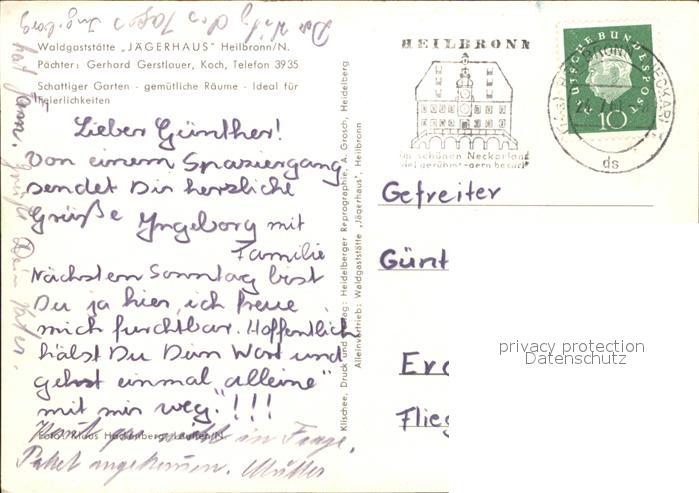 Waldgaststätte „JÄGERHAUS" Heilbronn/N.
Pächter: Gerhard Gerstlauer, Koch, Telefon 3935
Schattiger Garten - gemütliche Räume - Ideal für
Feierlichkeiten
Lieber Günther!
Von einem Spaziergang
sendet Dir herzliche
Grüße Yngeborg mit
Familie
Nächsten Sonntag bist
Du ja hier, ich freue
mich furchtbar. Hoffentlich
hälst Du Dein Wort und
gehst einmal „alleine"
mit mir weg."!!!
Kommt gar nicht in Frage.
Paket angekommen. Mutter
Foto: Klaus Lauffen/N.
Der Witz des Tages Ingeborg
hat Grüße Dein Vater.
Klischee, Druck und Verlag: Heidelberger Reprographie, A. Grosch, Heidelberg
Alleinvertrieb: Waldgaststätte „Jägerhaus", Heilbronn
HEILBRONN
Im schönen Neckarland
viel gerühmt-gern besucht
DEUTSCHE BUNDESPOST
10
ds
Gefreiter
Günt
Flieg
privacy protection
Datenschutz